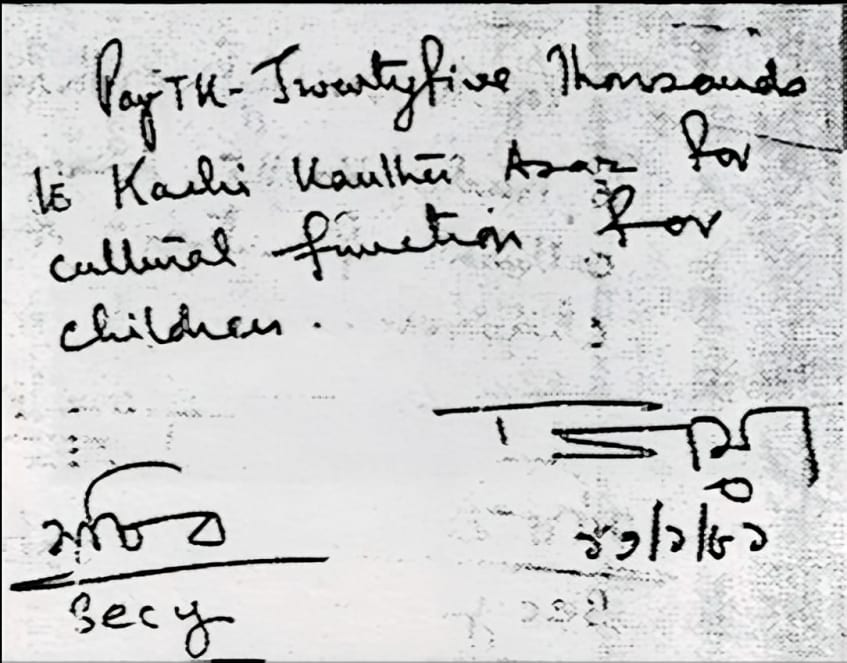 Pay TK- Twentyfive Thousands
to Kachi Kanthar Asar for
cultural function for
children.
সচিব
২১/১/৮১
Secy